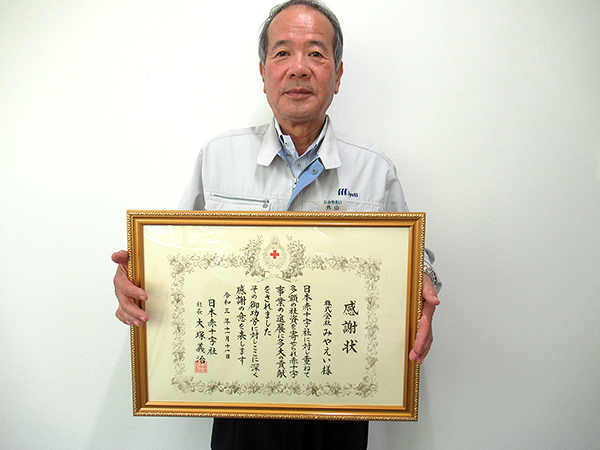 感謝状
株式会社 みやえい 様
日本赤十字社に対し重ねて
多額の社資を寄せられ赤十字
事業の進展に多大の貢献
をされました
その御功労に対しここに深く
感謝の意を表します
令和三年十一月十一日
日本赤十字社
社長 大塚義治
外山